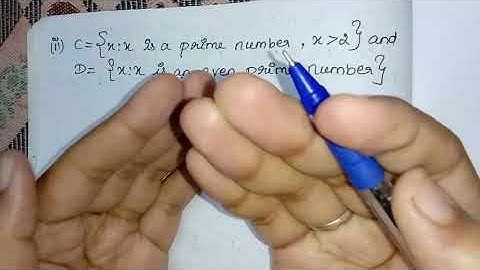 ii) C= {x:x is a prime number, x>2} and
D= {x:x is an even prime number}